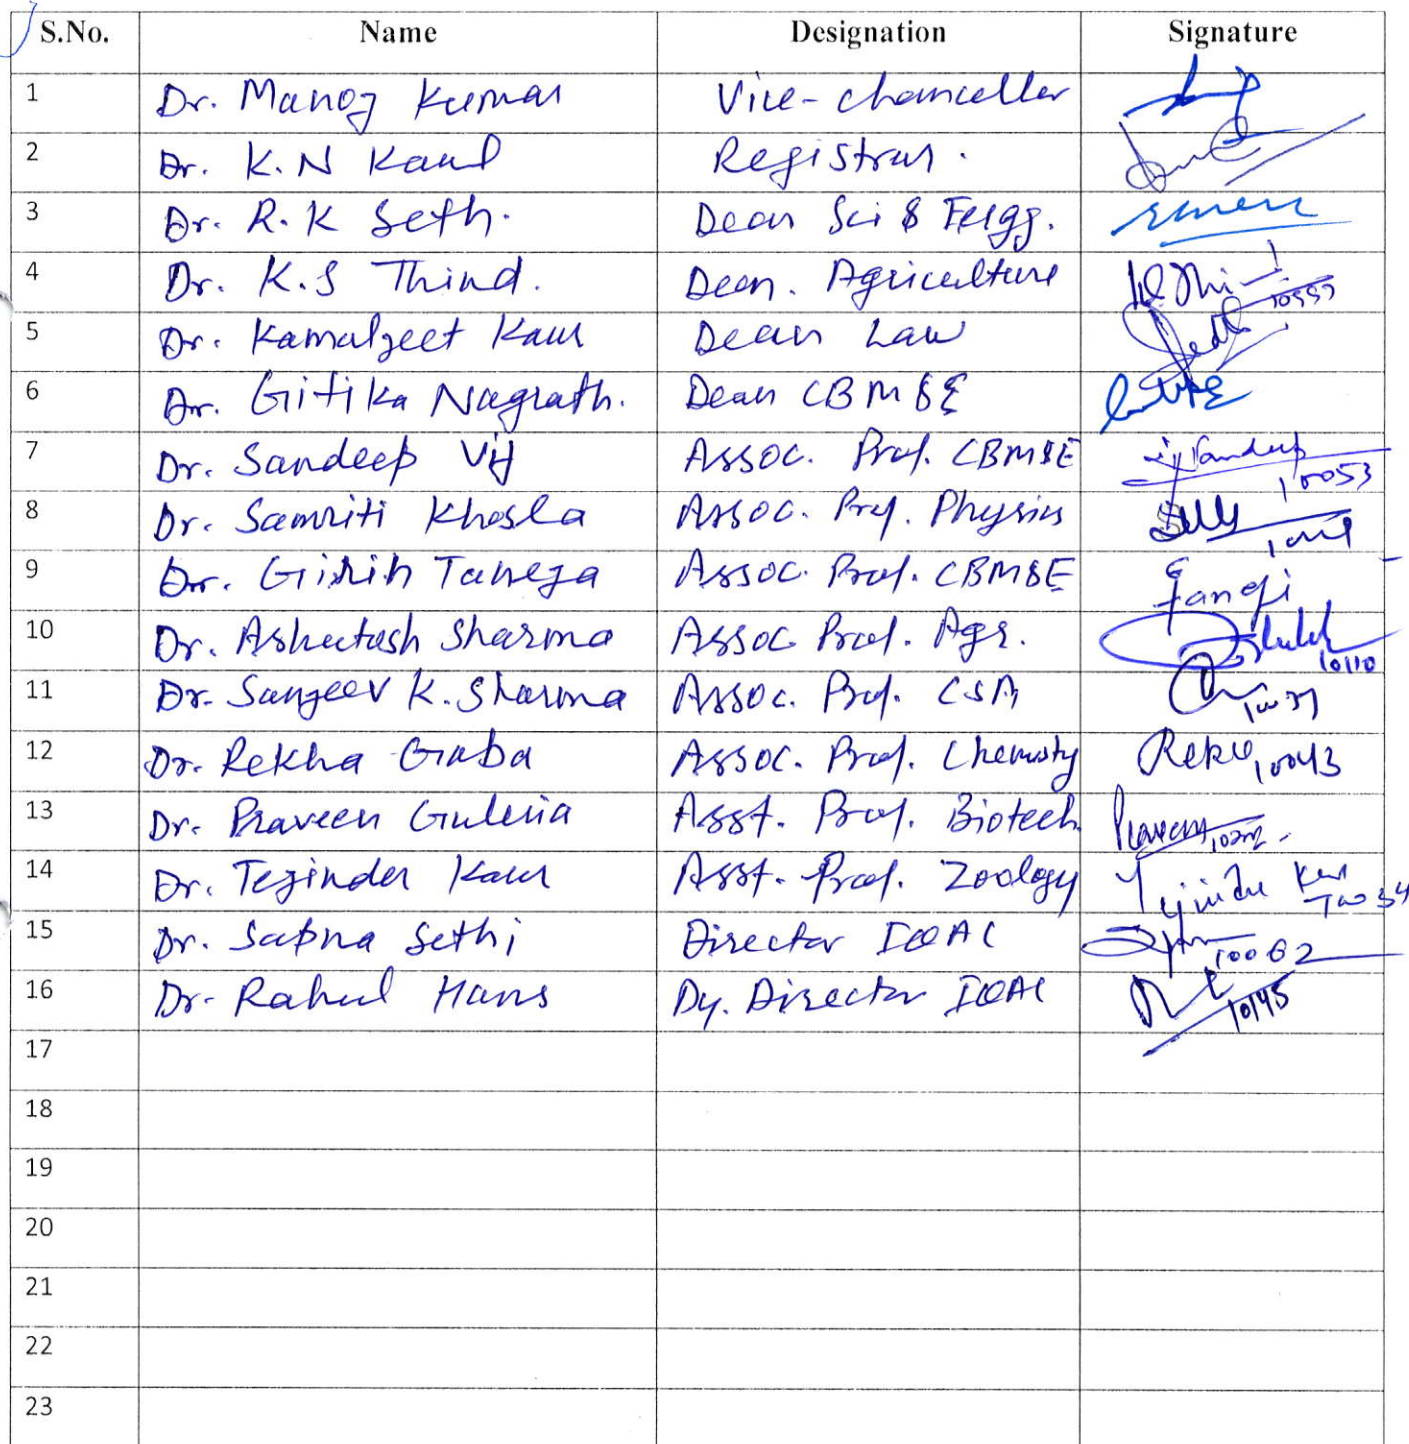 S.No. Name Designation Signature
1 Dr. Manoj Kumar Vice-chancellor
2 Dr. K.N Kaul Registrar.
3 Dr. R.K Seth. Dean Sci & Engg.
4 Dr. K.S Thind. Dean. Agriculture
5 Dr. Kamaljeet Kaur Dean Law
6 Dr. Gitika Nagrath. Dean CBM&E
7 Dr. Sandeep Vij Assoc. Prof. CBM&E Sandeep 10053
8 Dr. Samriti Khosla Assoc. Prof. Physics
9 Dr. Girish Taneja Assoc. Prof. CBM&E
10 Dr. Ashutosh Sharma Assoc Prof. Agr. 10110
11 Dr. Sanjeev K. Sharma Assoc. Prof. CSA
12 Dr. Rekha Gaba Assoc. Prof. Chemistry 10043
13 Dr. Praveen Guleria Asst. Prof. Biotech.
14 Dr. Tejinder Kaur Asst. Prof. Zoology
15 Dr. Sapna Sethi Director IQAC 10062
16 Dr. Rahul Hans Dy. Director IQAC 10145
17
18
19
20
21
22
23